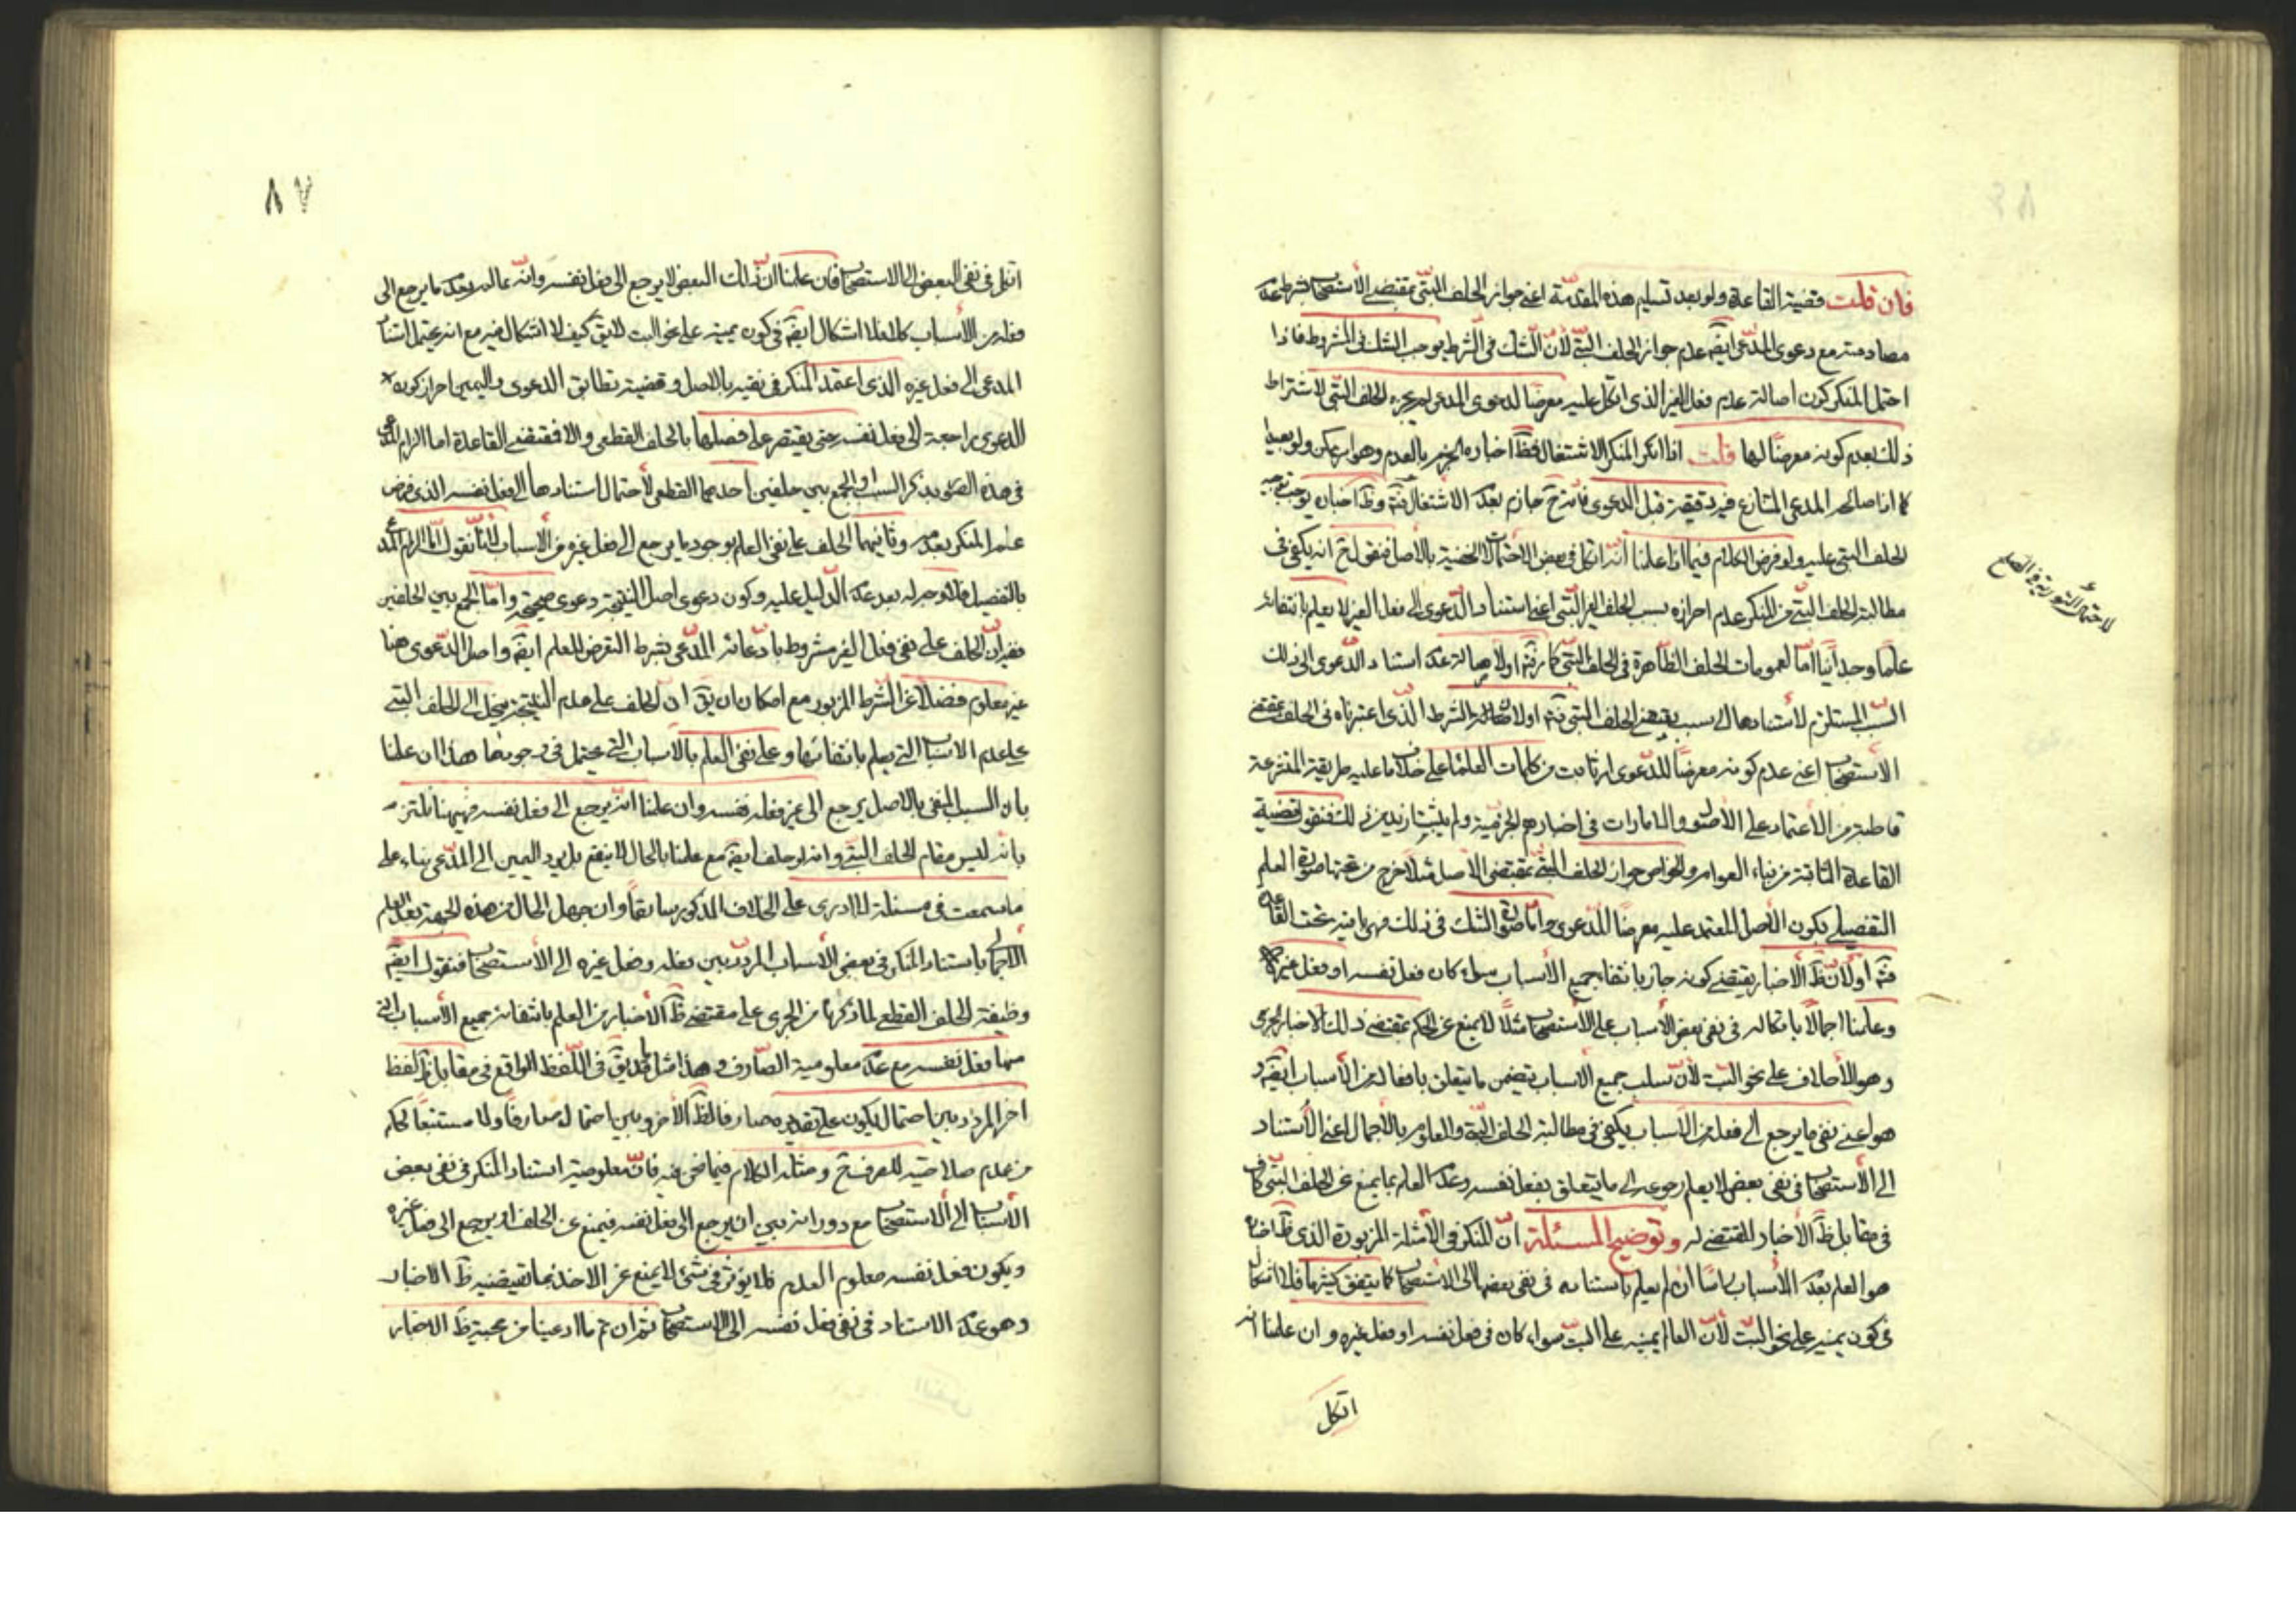 فان قلت قضية القاعدة ولو بعد تسليم هذه المقدمة اعنى جواز الحلف البتى بمقتضى الاستصحاب شرط عدم
مصادمته مع دعوى المدعى ايضا عدم جواز الحلف البتى لأن الشك فى الشرط يوجب الشك فى المشروط فاذا
احتمل المنكر كون اصالة عدم فعل الغير الذى اتكل عليه معرضا لدعوى المدعى لم يجز له الحلف البتى لاشتراط
ذلك بعدم كونه معرضا لها قلت اذا انكر المنكر الاشتغال فظ اخباره الجزم بالعدم وهو امر ممكن ولو بعيدا
كما اذا صالحه المدعى المتنازع فيه دقيقة قبل الدعوى فانه ح جازم بعدم الاشتغال وظ اخباره يوجب توجيه
الحلف البتى عليه ولو فرض الكلام فيما اذا علمنا انه اتكل فى بعض الاحتمالات الخفية بالاصل فنقول ح انه يكفى فى
لاحتمال التورية فى الصلح
مطالبة الحلف البتى من المنكر عدم احرازه بسبب الحلف الغير البتى اعنى استناد الدعوى الى فعل الغير لا يعلم بانتفائه
علما وجدانيا اما لعمومات الحلف الظاهرة فى الحلف البتى كما او لاصالة عدم استناد الدعوى الى ذلك
السبب المستلزم لاستنادها الى سبب يقتضى الحلف البتى او لاصالة الشرط الذى اعتبرناه فى الحلف بمقتضى
الاستصحاب اعنى عدم كونه معرضا للدعوى اذ ثابت من كلمات العلماء على خلاف ما عليه طريقة المتشرعة
قاطبة من الاعتماد على الأصول والامارات فى اخبارهم الجزمية ولم يثبت ازيد من ذلك فنقول قضية
القاعدة الثابتة من بناء العوام والخواص جواز الحلف البتى بمقتضى الاصل مثلا خرج من تحتها صورة العلم
التفصيلى بكون الأصل المعتمد عليه معرضا للدعوى واما صورة الشك فى ذلك فهى باقية تحت القاعدة
او لأن ظ الأخبار يقتضى كونه جازما بانتفاء جميع الأسباب سواء كان فعل نفسه او فعل غيره
وعلمنا اجمالا باتكاله فى نفى بعض الأسباب على الاستصحاب مثلا لا يمنع عن الحكم بمقتضى ذلك الاخبار الجزمى
وهو الأحلاف على نحو البت لأن سلب جميع الأسباب يتضمن ما يتعلق بافعاله من الأسباب ايضا و
هو اعنى نفى ما يرجع الى فعله من الأسباب يكفى فى مطالبة الحلف البتة والمعلوم بالاجمال اعنى الأستناد
الى الأستصحاب فى نفى بعض لا يعلم رجوعه الى ما يتعلق بفعل نفسه وعدم العلم بما يمنع عن الحلف البتى كاف
فى مقابل ظ الأخبار المقتضى له وتوضيح المسئلة ان المنكر فى الأمثلة المزبورة الذى ظ اخباره
هو العلم بعدم الأسباب راسا ان لم يعلم باستناده فى نفى بعضها الى الاستصحاب كما يتفق كثيرا فلا اشكال
فى كون يمينه على نحو البت لأن العالم يمينه على البت سواء كان فى فعل نفسه او فعل غيره وان علمنا انه
اتكل
٨٧
اتكل فى نفى البعض الى الاستصحاب فان علمنا ان ذلك البعض لا يرجع الى فعل نفسه وانه عالم بعدم ما يرجع الى
فعله من الأسباب كلها فلا اشكال ايضا فى كون يمينه على نحو البت لا يق كيف لا اشكال فيه مع انه يحتمل استناد
المدعى الى فعل غيره الذى اعتمد المنكر فى نفيه بالاصل وقضية تطابق الدعوى واليمين احراز كون
الدعوى راجعة الى فعل نفسه حتى يقتصر على فصلها بالحلف القطعى والا فمقتضى القاعدة اما الزام المدعى
فى هذه الصورة بذكر السبب او الجمع بين حلفين احدهما القطعى لأحتمال استنادها الى فعل نفسه الذى فرض
علم المنكر بعدمه وثانيهما الحلف على نفى العلم بوجود ما يرجع الى فعل غيره من الأسباب لانا نقول اما الزام المدعى
بالتفصيل فلا وجه له بعد عدم الدليل عليه وكون دعوى اصل النتيجة دعوى صحيحة واما الجمع بين الحلفين
ففيه ان الحلف على نفى فعل الغير مشروط بادعائه المدعى بشرط التعرض للعلم ايضا واصل الدعوى هنا
غير معلوم فضلا عن الشرط المزبور مع امكان ان يق ان الحلف على عدم النتيجة ينحل الى الحلف البتى
على عدم الاسباب التى يعلم بانتفائها وعلى نفى العلم بالأسباب التى يحتمل فى وجودها هذا ان علمنا
بان السبب المنفى بالاصل يرجع الى غير فعله نفسه وان علمنا انه يرجع الى فعل نفسه فهيهنا نلتزم
بانه ليس مقام الحلف البتى وانه لو حلف ايضا مع علمنا بالحال لا ينفع بل يرد اليمين الى المدعى بناء على
ما سمعت فى مسئلة لا ادرى على الخلاف المذكور سابقا وان جهل الحال من هذه الجهة بعد العلم
الأجمالى باستناد المنكر فى بعض الأسباب المردد بين فعله وفعل غيره الى الاستصحاب فنقول ايضا
وظيفته الحلف القطعى لما ذكرنا من الجرى على مقتضى ظ الأخبار من العلم بانتفائه جميع الأسباب التى
منها فعل نفسه مع عدم معلومية الصارف وهذا مثل ما يق فى اللفظ الواقع فى مقابل ظ لفظ
اخر المردد بين احتمال يكون على تقديره صارفا لظ الأخر وبين احتمال لا صارفا ولا مستتبعا لحكم
من عدم صلاحيته للصرف ح ومثله الكلام فيما نحن فيه فان معلومية استناد المنكر فى نفى بعض
الأسباب الى الأستصحاب مع دورانه بين ان يرجع الى فعل نفسه فيمنع عن الحلف او يرجع الى فعل غيره
ويكون فعل نفسه معلوم العدم فلا يؤثر فى شئ لا يمنع عن الاخذ بما يقتضيه ظ الاخبار
وهو عدم الاستناد فى نفى فعل نفسه الى الاستصحاب ثم ان تم ما ادعينا من حجية ظ الاخبار